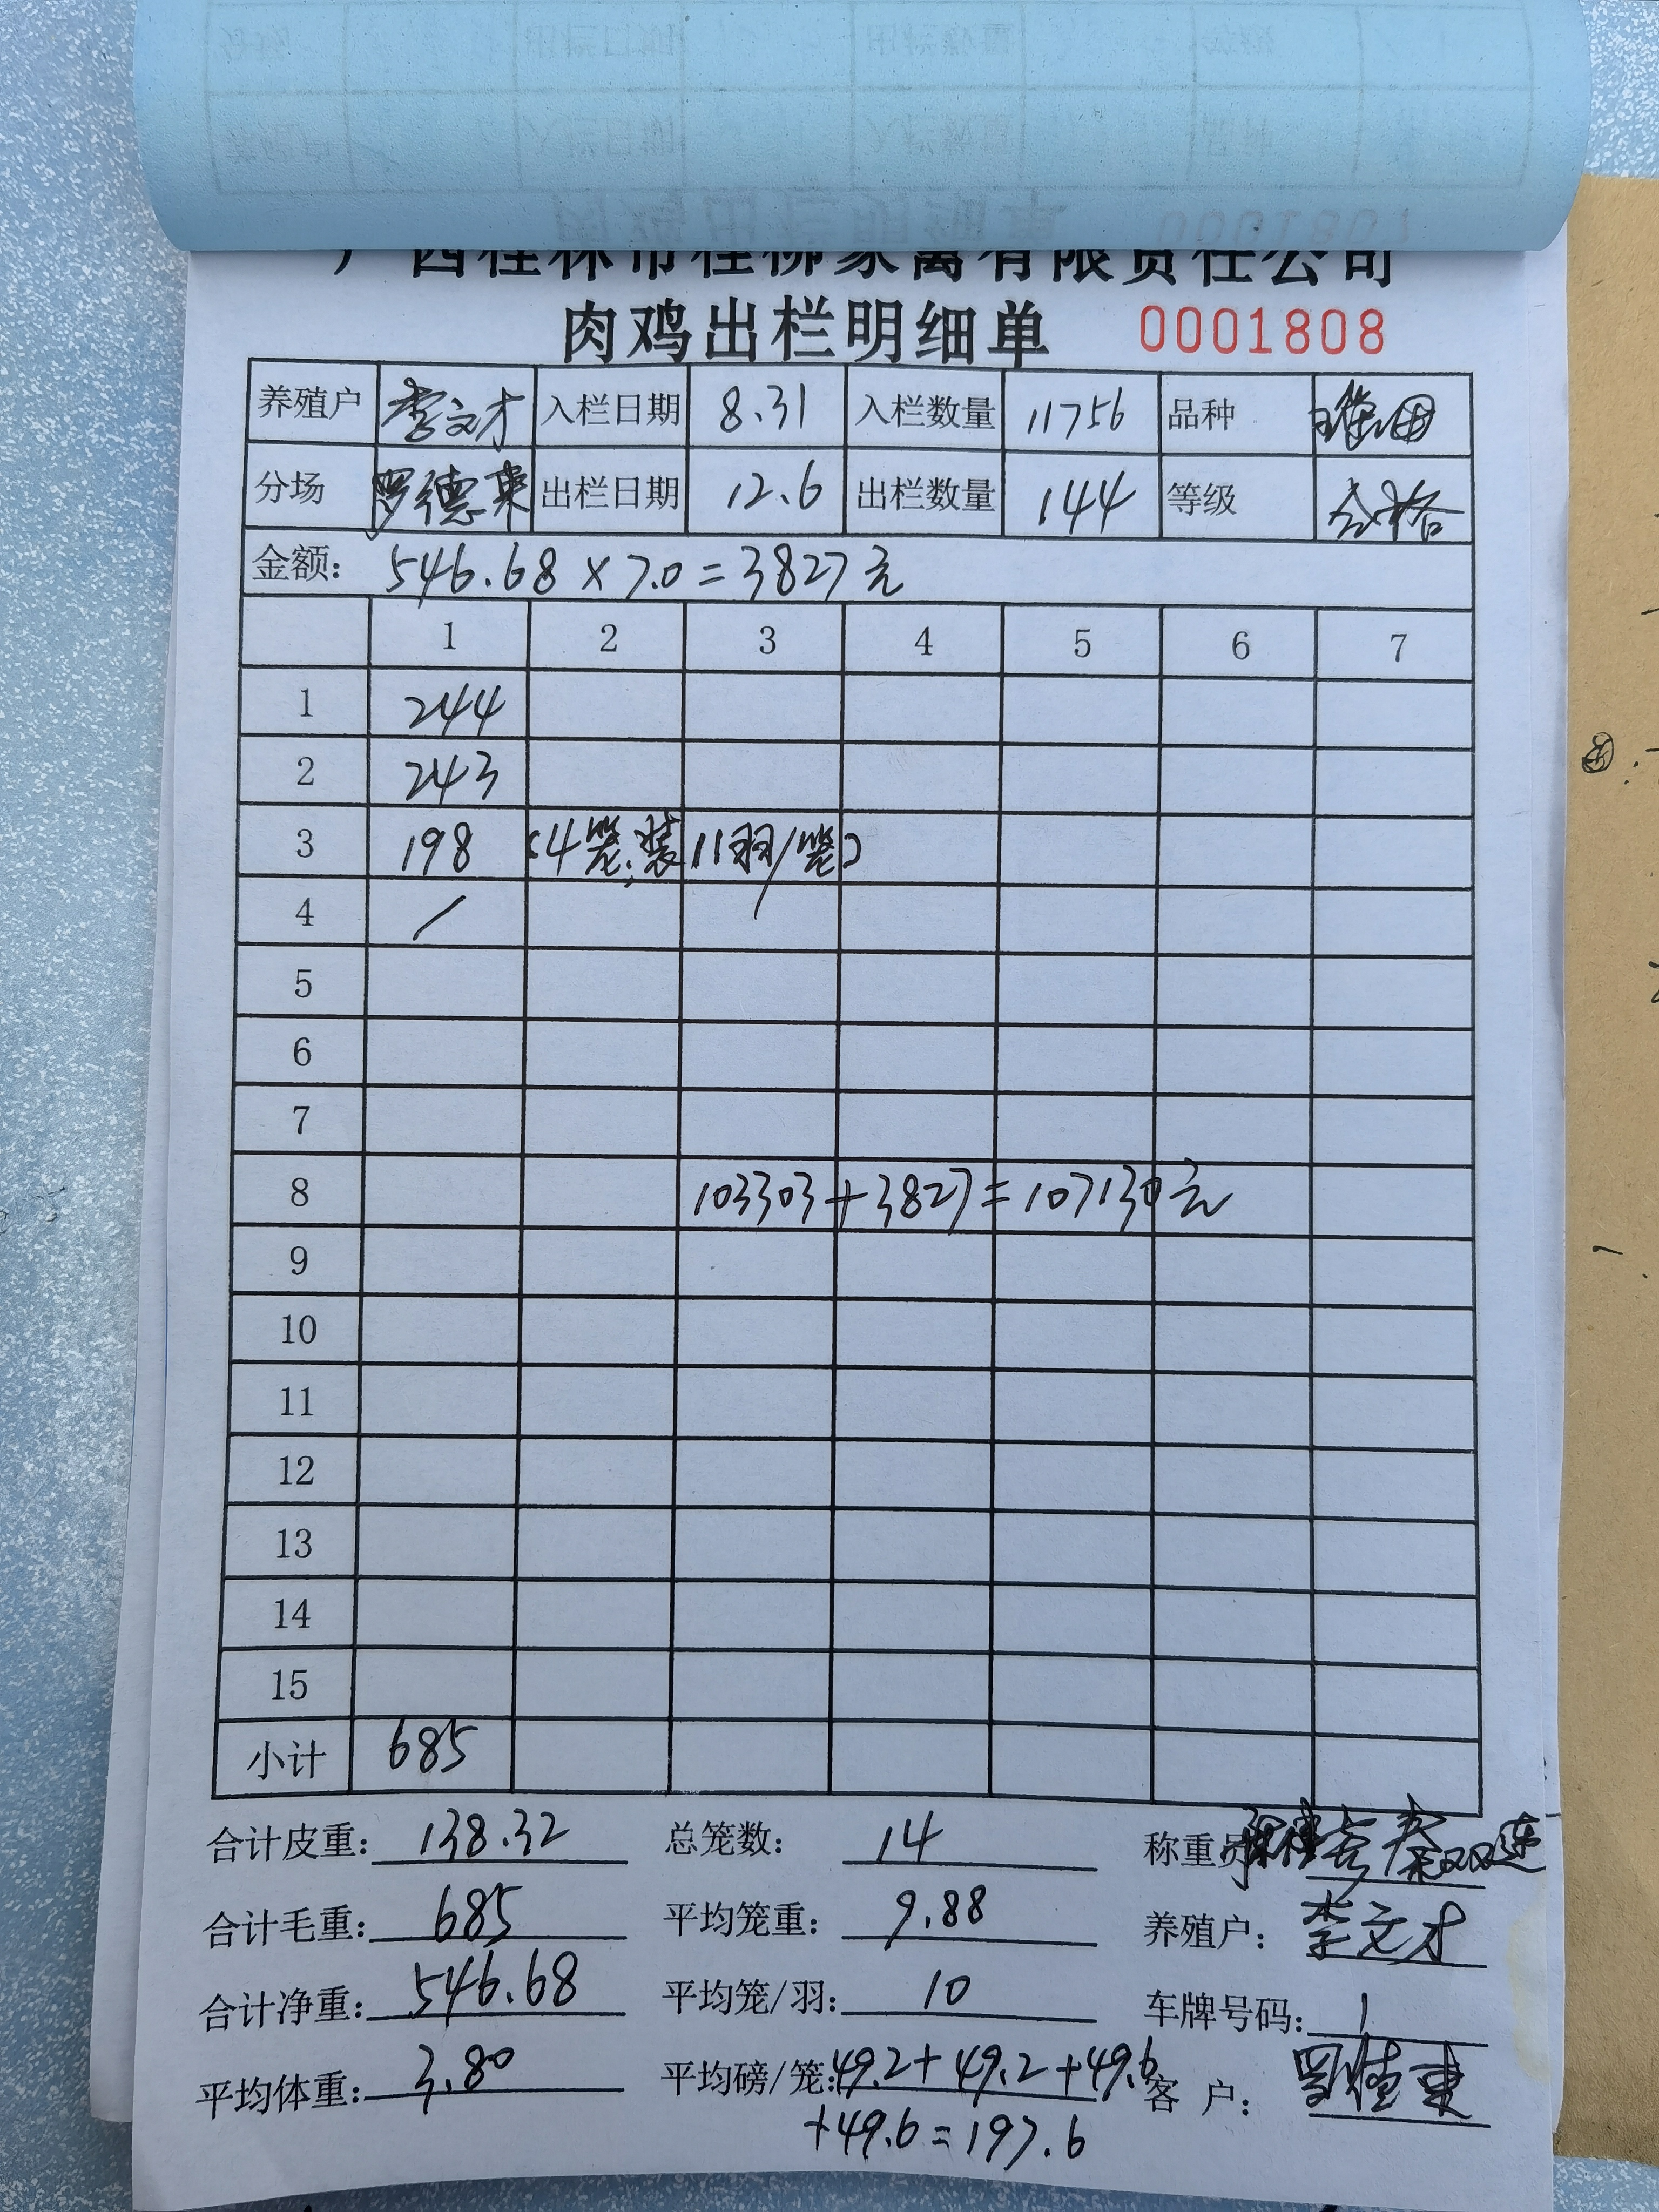 广西桂林市桂柳家禽有限责任公司
肉鸡出栏明细单 0001808
养殖户 李文才 入栏日期 8.31 入栏数量 11756 品种
分场 罗德东 出栏日期 12.6 出栏数量 144 等级 合格
金额: 546.68×7.0=3827元
1 2 3 4 5 6 7
1 244
2 243
3 198 (4笼,装11羽/笼)
4 /
5
6
7
8 103303+3827=107130元
9
10
11
12
13
14
15
小计 685
合计皮重: 138.32 总笼数: 14 称重员
合计毛重: 685 平均笼重: 9.88 养殖户: 李文才
合计净重: 546.68 平均笼/羽: 10 车牌号码: 1
平均体重: 3.80 平均磅/笼: 49.2+49.2+49.6 客户: 罗德东
+49.6=197.6